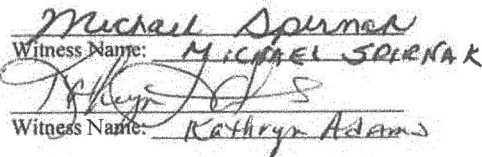 Michael Spirnak
Witness Name: MICHAEL SPIRNAK
Witness Name: Kathryn Adams